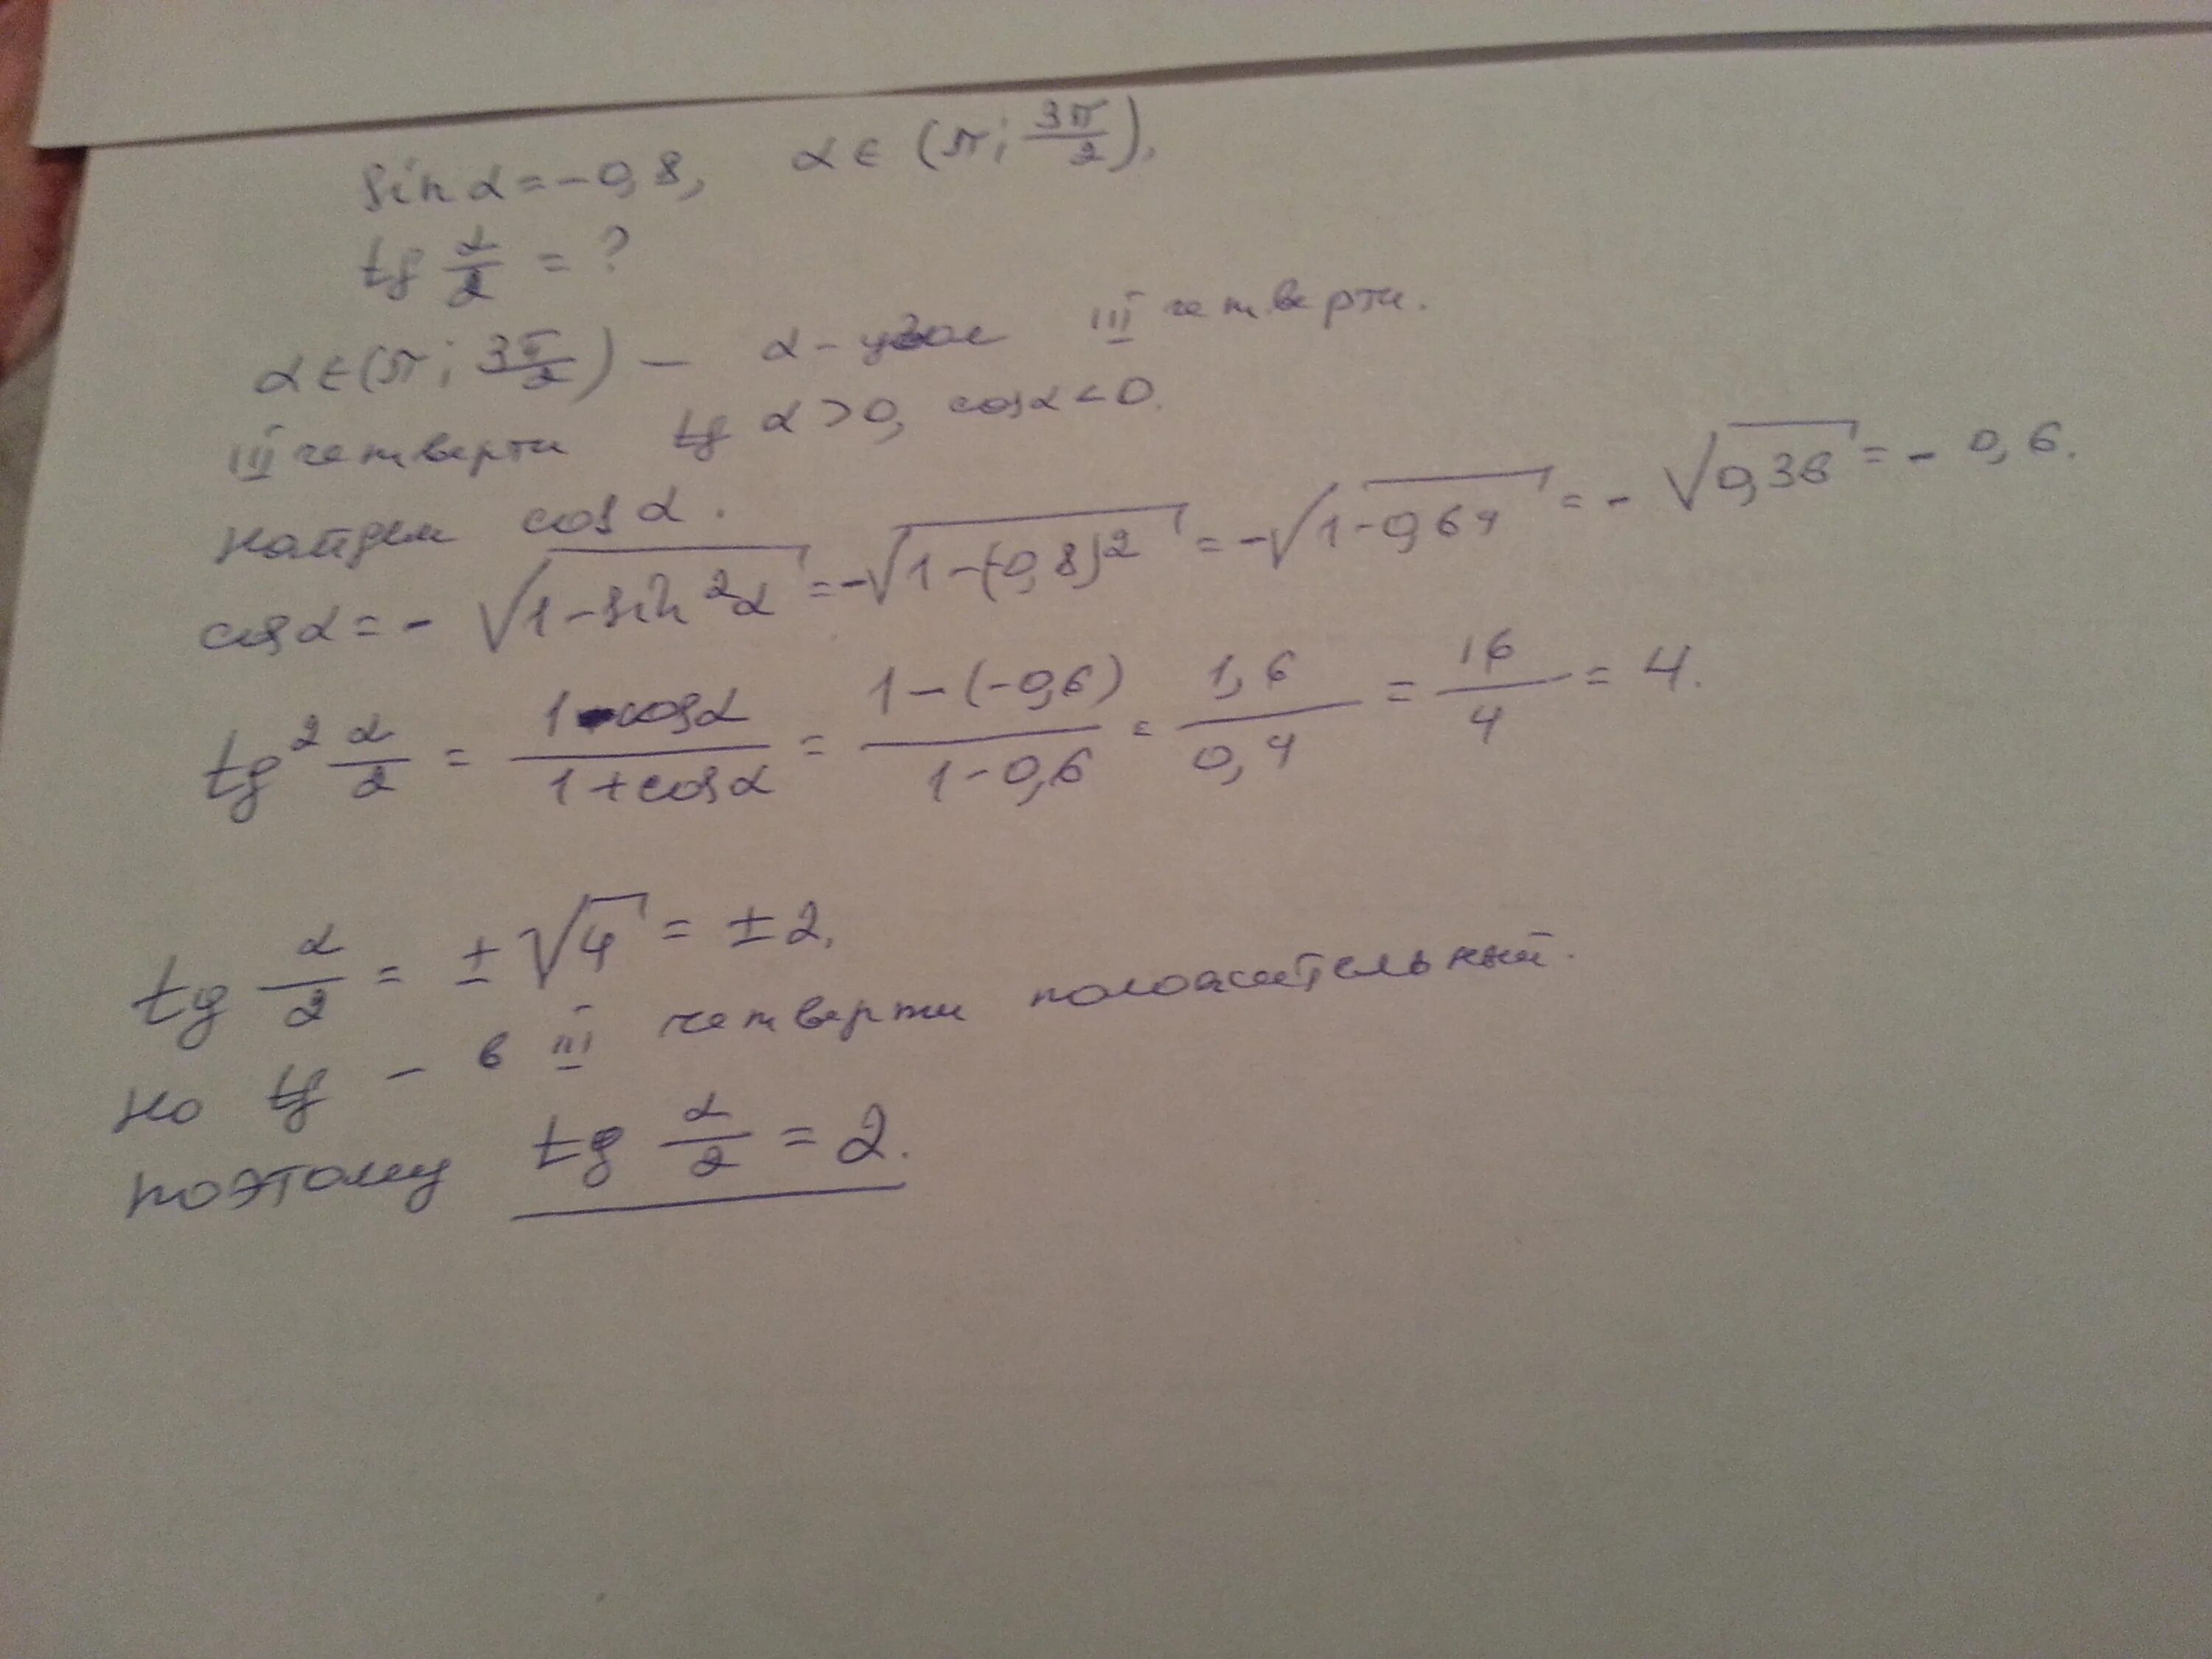 sin α = -0,8, α ∈ (π; 3π/2),
tg α/2 = ?
α ∈ (π; 3π/2) — α - угол III четверти.
III четверти tg α > 0, cos α < 0.
найдем cos α.
cos α = - √(1 - sin²α) = -√(1 - (-0,8)²) = -√(1 - 0,64) = - √0,36 = - 0,6.
tg² α/2 = (1 - cos α)/(1 + cos α) = (1 - (-0,6))/(1 - 0,6) = 1,6/0,4 = 16/4 = 4.
tg α/2 = ± √4 = ± 2,
но tg - в III четверти положительный.
поэтому tg α/2 = 2.